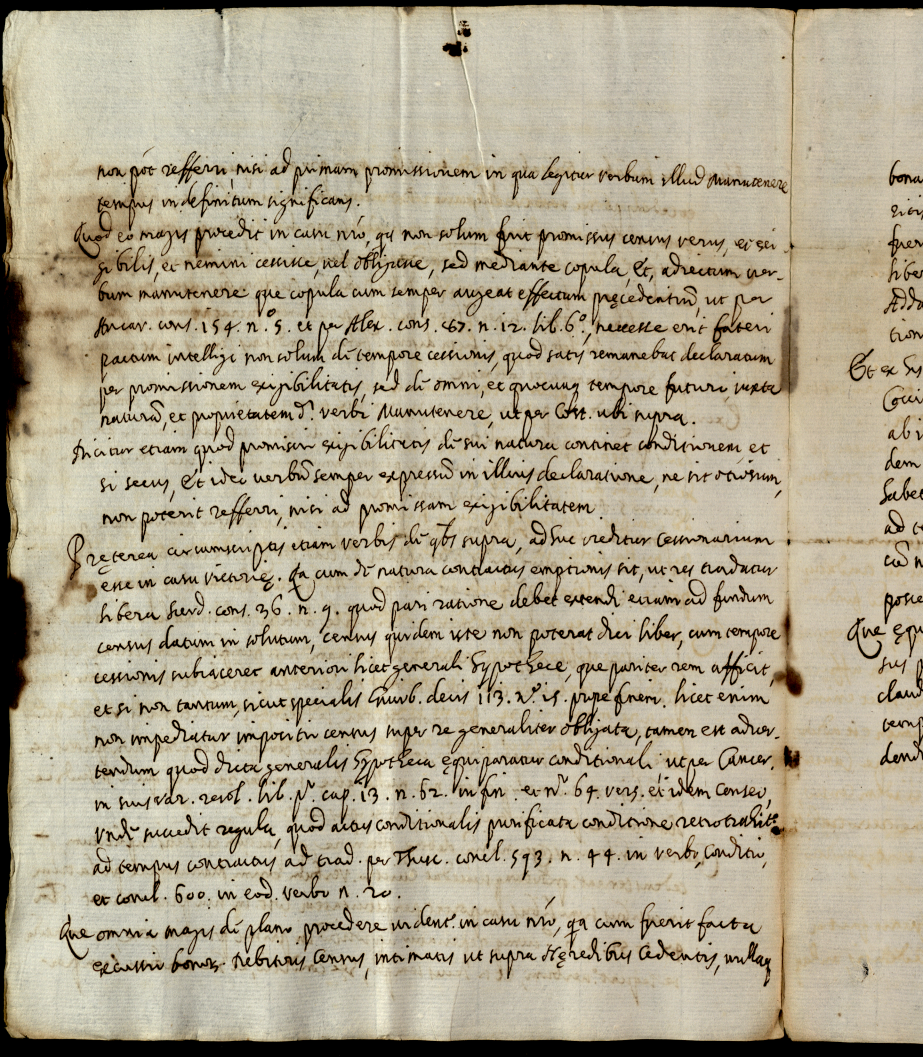 non pót refferri, nisi ad primam promissionem in qua legitur verbum illud Manutenere
tempus indefinitum significans.
Quod eo magis procedit in casu nró, qa non solum fuit promissus census verus, et exi
gibilis, et nemini cessisse, vel obligasse, sed mediante copula Et, adiectum ver-
bum manutenere que copula cum semper augeat effectum pręcedentiũ, ut per
cons. 154. n.º 5. et per Alex. cons. 87. n. 12. lib. 6º, necesse erit fateri
pactum intelligi non solum dẽ tempore cessionis, quod satis remanebat declaratum
per promissionem exigibilitatis, sed dẽ omni, et quocunq tempore futuri iuxta
naturã, et proprietatem d. verbi Manutenere, ut per Cost. ubi supra.
Adicitur etiam quod promissio exigibilitatis dẽ sui natura continet conditionem et
si secus, Et ideo verbũ semper expressũ in illius declaratione, ne sit otiosum,
non poterit refferri, nisi ad promissam exigibilitatem
Pręterea circumscriptis etiam verbis dẽ qbs supra, adhuc creditur Cessionarium
esse in casu victorię. Qa cum dẽ natura contractus emptionis sit, ut res tradatur
libera Surd. cons. 36. n. 9. quod pari ratione debet extendi etiam ad fundum
census datum in solutum, census quidem iste non poterat dici liber, cum tempore
cessionis subiaceret anteriori licet generali Hypothece, que pariter rem afficit,
et si non tantum, sicut specialis decis 113. n.º 15. prope finem. licet enim
non impediatur impositio census super re generaliter obligata, tamen est adver-
tendum quod dicta generalis Hypotheca ęquiparatur conditionali ut per Cancer.
in suis var. resol. lib. pº cap. 13. n. 62. in fin et nº 64. vers. et idem censeo,
Undẽ succedit regula, quod actus conditionalis purificata conditione retrotrahitr
ad tempus contractus ad trad. per Thusc. concl. 593. n. 44. in verbo, conditio,
et concl. 600. in eod. verbo n. 20.
Que omnia magis dẽ plano procedere vident in casu nró, qa cum fuerit facta
excussio bonor debitoris Census, intimatis ut supra Hęredibus Cedentis, nullaq
bona
fuer
liber
Addo
tion
Et ex
ab i
dem
habet
ad te
cũ n
posse
Que ęqui
sus p
claud
temp
dend